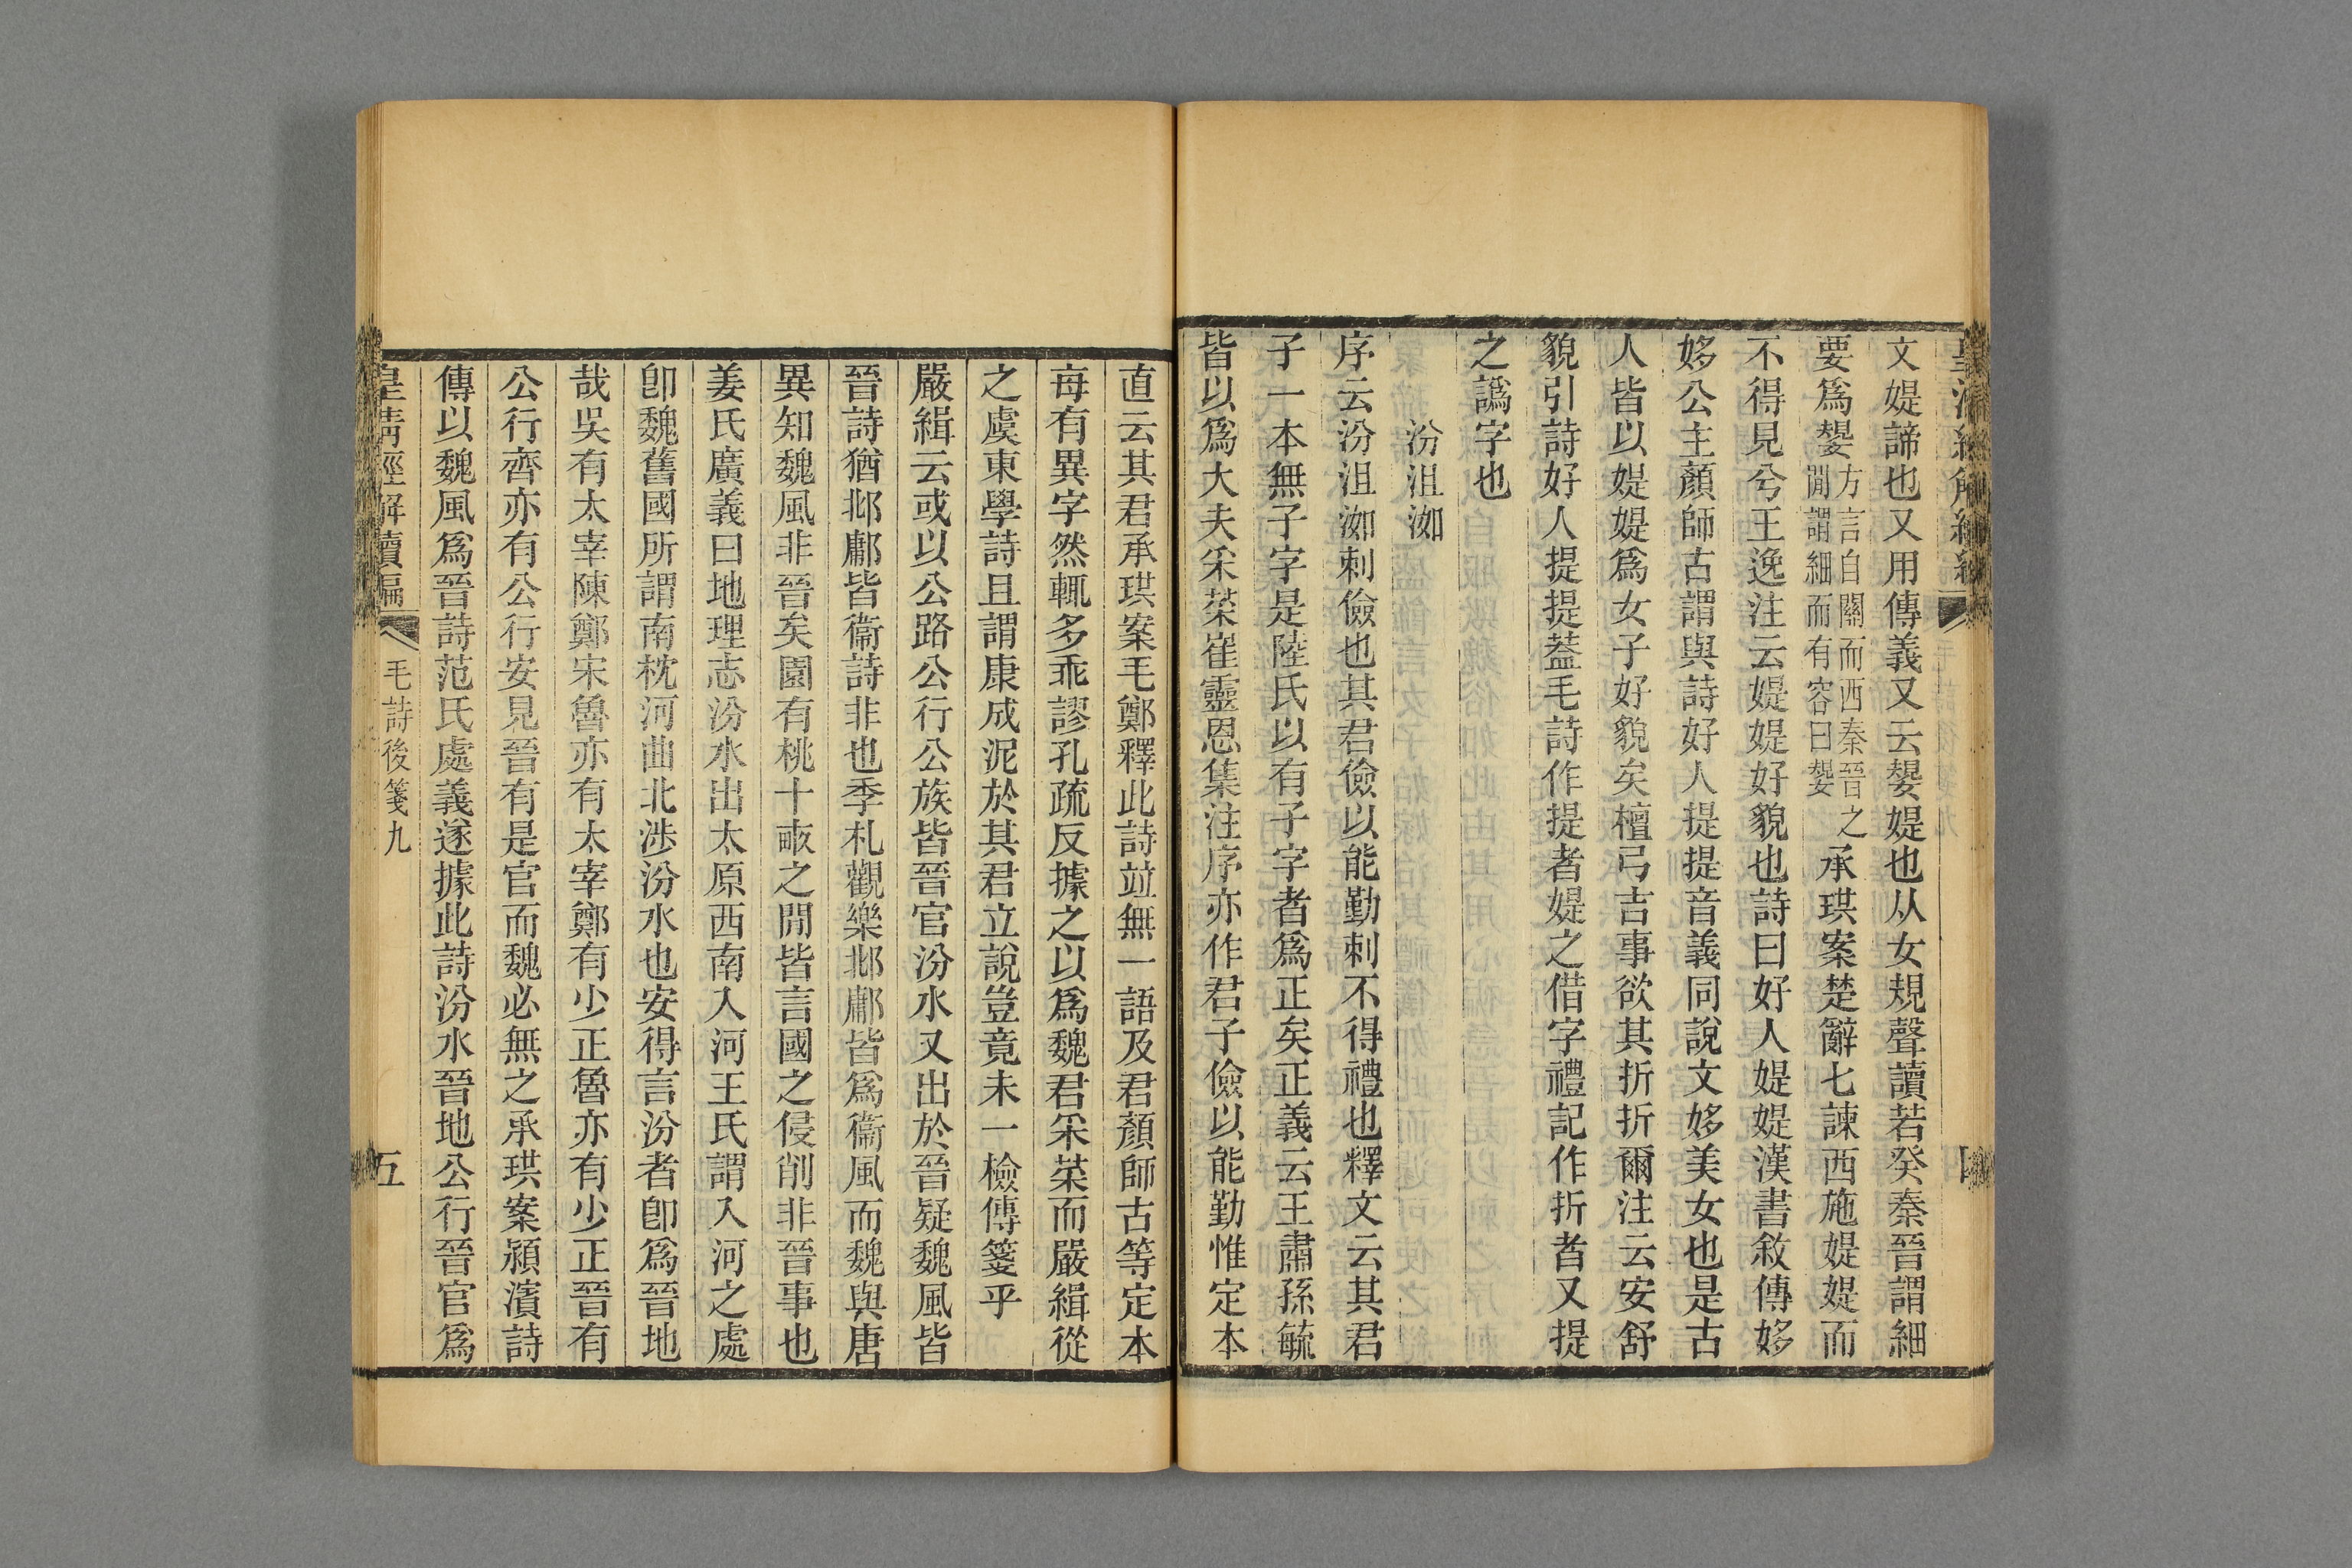 文媞諦也又用傳義又云嫢媞也从女規聲讀若癸秦晉謂細
要爲嫢方言自關而西秦晉之閒謂細而有容曰嫢承珙案楚辭七諫西施媞媞而
不得見兮王逸注云媞媞好貌也詩曰好人媞媞漢書敘傳姼
姼公主顏師古謂與詩好人提提音義同說文姼美女也是古
人皆以媞媞爲女子好貌矣檀弓吉事欲其折折爾注云安舒
貌引詩好人提提蓋毛詩作提者媞之借字禮記作折者又提
之譌字也
汾沮洳
序云汾沮洳刺儉也其君儉以能勤刺不得禮也釋文云其君
子一本無子字是陸氏以有子字者爲正矣正義云王肅孫毓
皆以爲大夫采菜崔靈恩集注序亦作君子儉以能勤惟定本
直云其君承珙案毛鄭釋此詩竝無一語及君顏師古等定本
每有異字然輒多乖謬孔疏反據之以爲魏君采菜而嚴緝從
之虞東學詩且謂康成泥於其君立說豈竟未一檢傳箋乎
嚴緝云或以公路公行公族皆晉官汾水又出於晉疑魏風皆
晉詩猶邶鄘皆衞詩非也季札觀樂邶鄘皆爲衞風而魏與唐
異知魏風非晉矣園有桃十畝之閒皆言國之侵削非晉事也
姜氏廣義曰地理志汾水出太原西南入河王氏謂入河之處
卽魏舊國所謂南枕河曲北涉汾水也安得言汾者卽爲晉地
哉吳有太宰陳鄭宋魯亦有太宰鄭有少正魯亦有少正晉有
公行齊亦有公行安見晉有是官而魏必無之承珙案潁濱詩
傳以魏風爲晉詩范氏處義遂據此詩汾水晉地公行晉官爲
皇清經解續編 毛詩後箋九 五